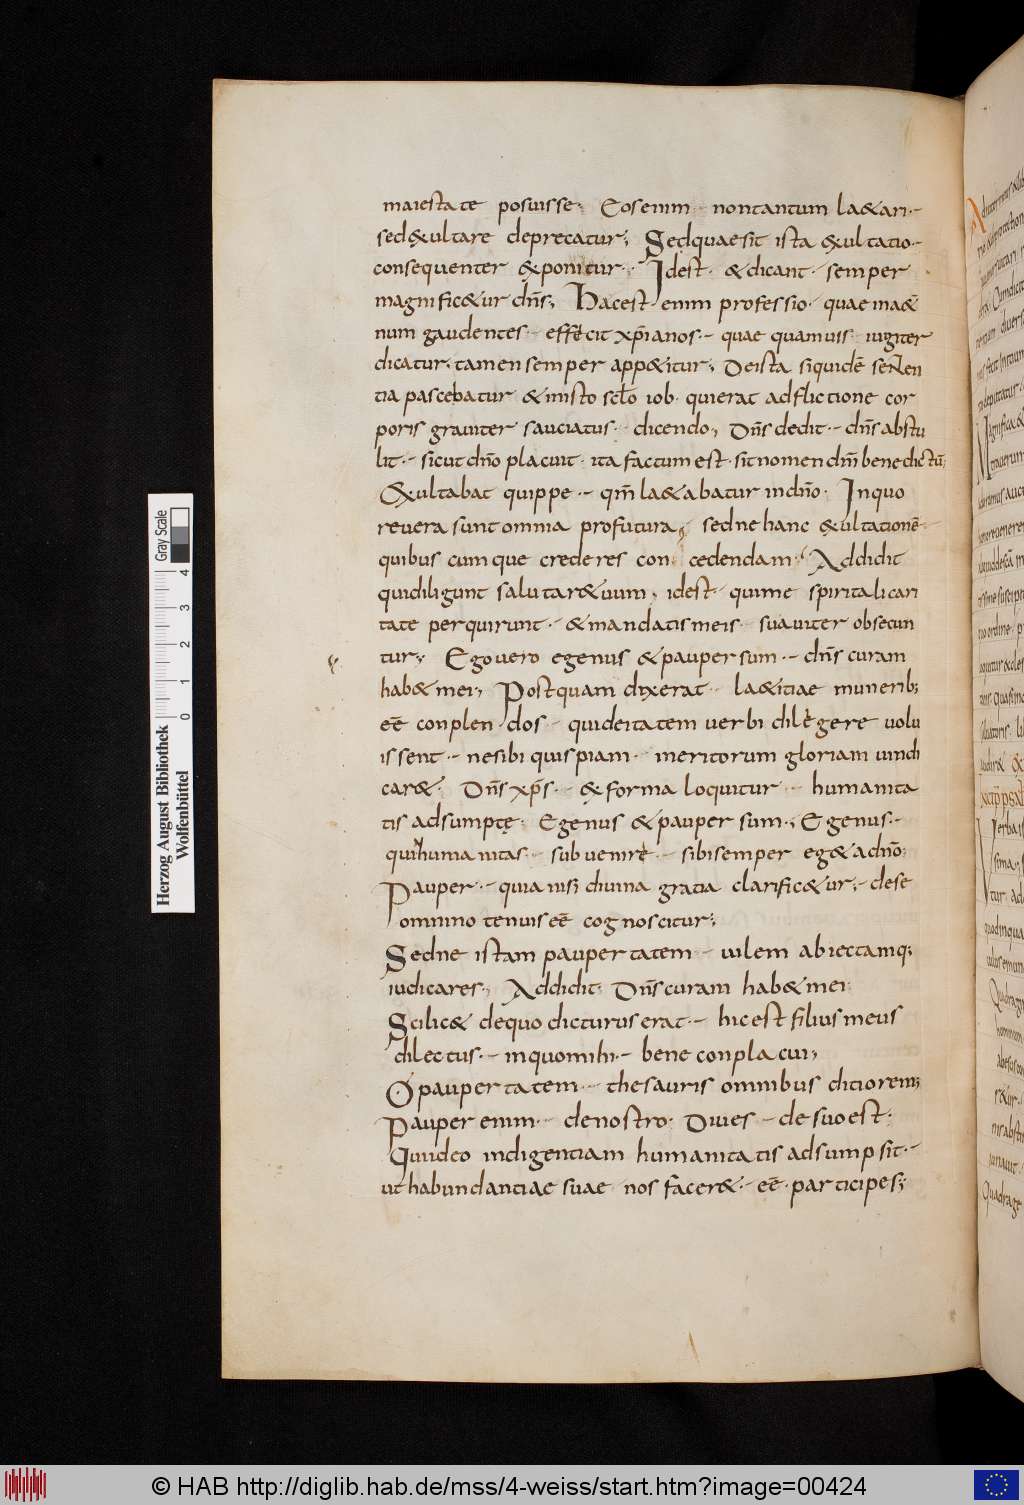 maiestate posuisse· Eos enim · non tantum la&ari·
sed &ultare deprecatur; Sed quae sit ista &ultatio·
consequenter &ponitur · Idest · & dicant · semper
magnific&ur dn̄s; Haec est enim professio · quae ma&̄
num gaudentes · effecit xp̄ianos · quae quamuis · iugiter
dicatur · tamen semper app&itur; De ista siquidē senten
tia pascebatur & in isto scl̄o iob · qui erat adflictione cor
poris grauiter sauciatus · dicendo; Dn̄s dedit · dn̄s abstu
lit · sicut dn̄o placuit · ita factum est · sit nomen dn̄i benedictū;
Exultabat quippe · qm̄ la&abatur in dn̄o · In quo
reuera sunt omnia profutura; sed ne hanc &ultationē
quibuscumque crederes con cedendam · Addidit
qui diligunt salutar&uum; idest · qui me spiritali cari
tate perquirunt · & mandatis meis · suauiter obsecun
tur; Ego uero egenus & pauper sum · dn̄s curam
hab& mei; Postquam dixerat · la&itiae munerib;
eē conplen dos · qui deitatem uerbi diligere uolu
issent · ne sibi quispiam · meritorum gloriam uindi
car& · Dn̄s xp̄s · & forma loquitur · humanita
tis adsumptę · Egenus & pauper sum; Egenus ·
qui humanitas · subuenire · sibi semper eg& a dn̄o;
Pauper · quia nisi diuina gratia clarific&ur; de se
omnino tenuis eē cognoscitur;
Sed ne istam paupertatem · uilem abiectamq;
iudicares; Addidit · Dn̄s curam hab& mei
Scilic& de quo dicturus erat · hic est filius meus
dilectus · in quo mihi · bene conplacui;
O paupertatem · thesauris omnibus ditiorem;
Pauper enim · de nostro · Diues · de suo est ·
Qui ideo indigentiam humanitatis adsumpsit ·
ut habundantiae suae nos facer& · eē participes;
Herzog August Bibliothek
Wolfenbüttel
0 1 2 3 4
Gray Scale
© HAB http://diglib.hab.de/mss/4-weiss/start.htm?image=00424